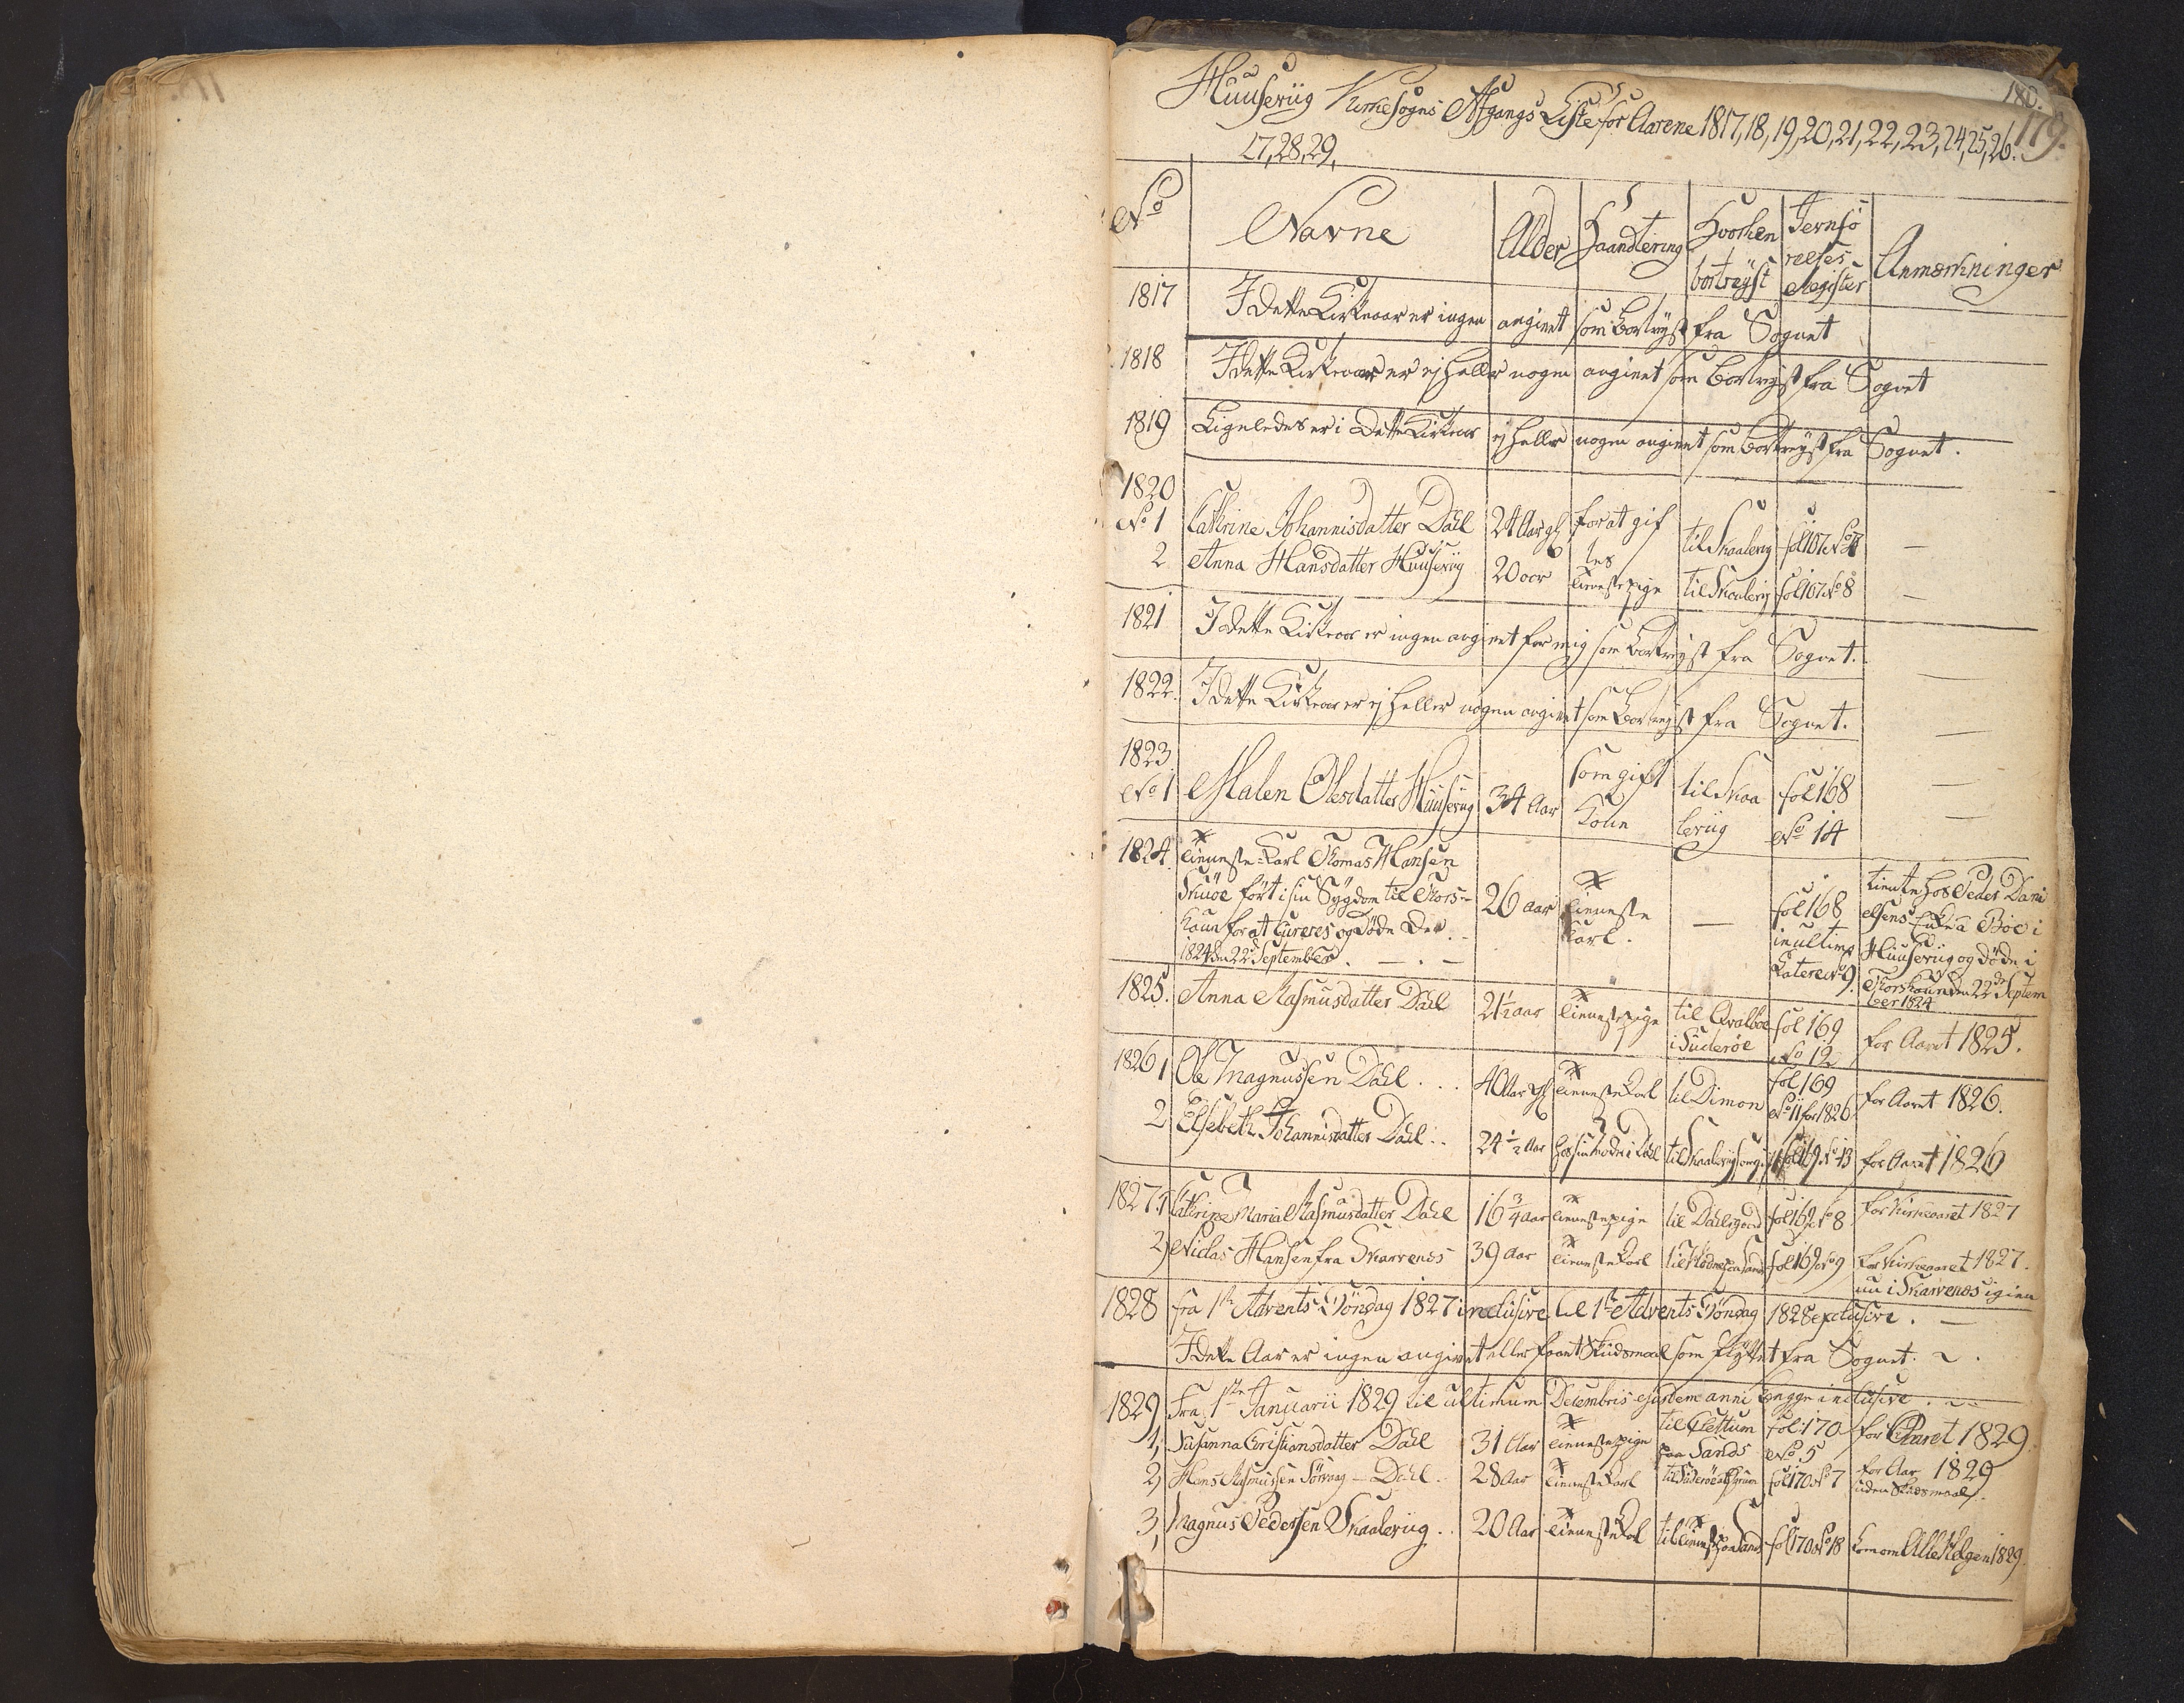 180.
179.
Huuserüg Kirkesogns Afgangs Liste for Aarene 1817, 18, 19, 20, 21, 22, 23, 24, 25, 26.
27, 28, 29,
No Navne Alder Haandtering Hvorhen bortreyst Jevnføreelses Register Anmærkninger
1817 I dette Kirkeaar er ingen angivet som bortreyst fra Sognet
1818 I dette Kirkeaar er ej heller nogen angivet som bortreyst fra Sognet
1819 Ligeledes er i dette Kirkeaar ej heller nogen angivet som bortreyst fra Sognet.
1820
No 1 Cathrine Johannisdatter Dahl 24 Aar gl for at giftes til Skaalerüg fol 167 No —
2 Anna Hansdatter Huuserüg 20 aar tienestepige til Skaalerüg fol 167 No 8 —
1821 I dette Kirkeaar er ingen angivet for mig som bortreyst fra Sognet. —
1822. I dette Kirkeaar er ej heller nogen angivet som bortreyst fra Sognet. —
1823.
No 1 Malen Olesdatter Huuserüg 34 Aar som gift Kone til Skaalerüg fol 168 No 14 —
1824. tieneste-Karl Thomas Hansen
Skuöe ført i sin Sygdom til Thors-
haun for at cureres og døde der
1824 den 22de September. — . — 26 aar tieneste Karl. — fol 168 in ultimo Latere No 9. tiente hos Peder Danielsens Enke a Böe i Huuserüg og døde i Thorshaun den 22de September 1824
1825. Anna Rasmusdatter Dahl 21½ aar tienestepige til Qvalböe i Suderöe fol 169 No 12 for Aaret 1825.
1826 1 Ole Magnussen Dahl . . . 40 Aar gl tieneste Karl til Dimon fol 169 No 11 for 1826 for Aaret 1826.
2 Elsebeth Johannisdatter Dahl . . 24½ Aar hos sin Moder i Dahl til Skaalerüg fol 169 No 13 for Aaret 1826
1827. 1 Cathrine Maria Rasmusdatter Dahl 16¾ aar tienestepige til Dahlsgaard fol 169 No 8 for Kirkeaaret 1827
2) Niclas Hansen fra Skarvenæs 39 Aar tieneste Karl fol 169 No 9 for Kirkeaaret 1827.
nu i Skarvenæs igien
1828 fra 1ste Advents Søndag 1827 inclusive til 1ste Advents Søndag 1828 exclusive. —
I dette Aar er ingen angivet eller faaet Skudsmaal som flyttet fra Sognet.
1829 fra 1ste Januarii 1829 til ultimum Decembris ejusdem anni begge inclusive.
1, Susanna Christiansdatter Dahl 31 Aar tienestepige til Clettum paa Sands fol: 170 No 5 for Aaret 1829.
2) Hans Rasmussen Sörvaag — Dahl . 28 Aar tieneste Karl fol 170 No 7 for Aar 1829
uden Skudsmaal.
3, Magnus Pedersen Skaalerüg . . 20 Aar tieneste Karl fol 170 No 18 Alle Helgen 1829.